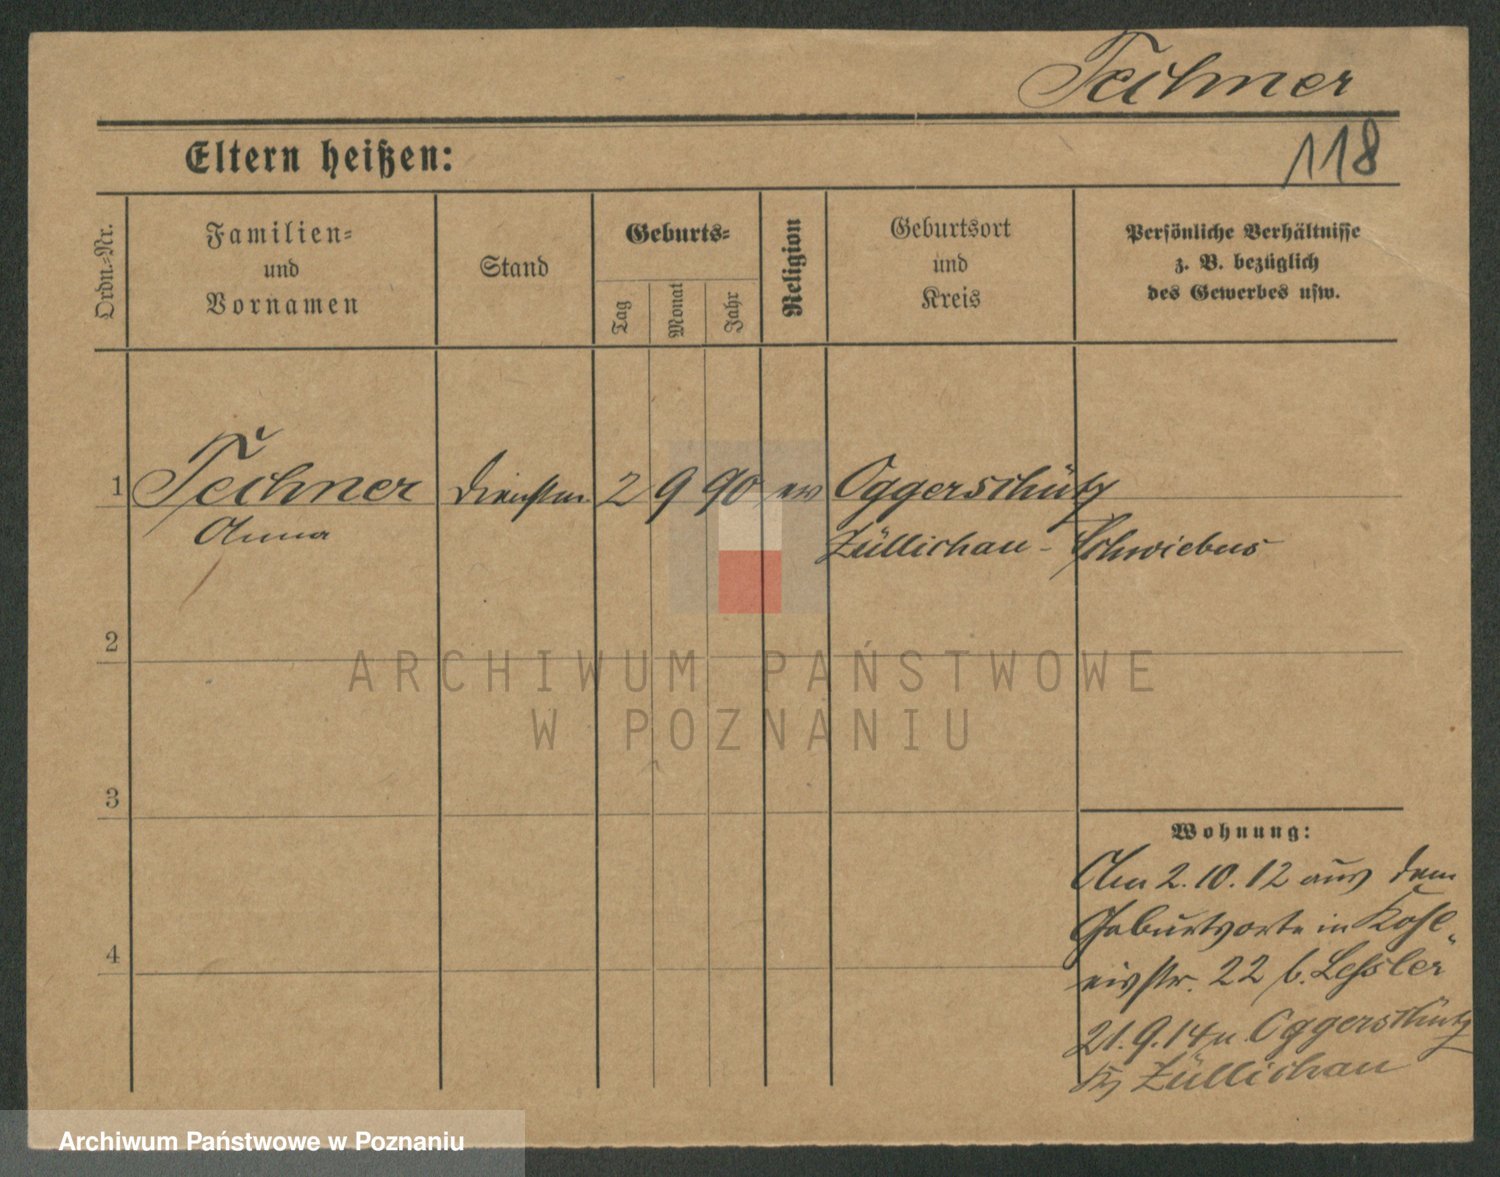 Techner
118
Eltern heißen:
Ordn.-Nr.
Familien-
und
Vornamen
Stand
Geburts-
Tag
Monat
Jahr
Religion
Geburtsort
und
Kreis
Persönliche Verhältnisse
z. B. bezüglich
des Gewerbes usw.
1 Techner 2 9 90 ev Oggerschütz
Anna Züllichau - Schwiebus
2
3
4
ARCHIWUM PAŃSTWOWE
W POZNANIU
Wohnung:
Am 2.10.12 aus dem
Geburtsorte in
22 b. Lessler
21.9.14 n. Oggerschütz
Züllichau
Archiwum Państwowe w Poznaniu